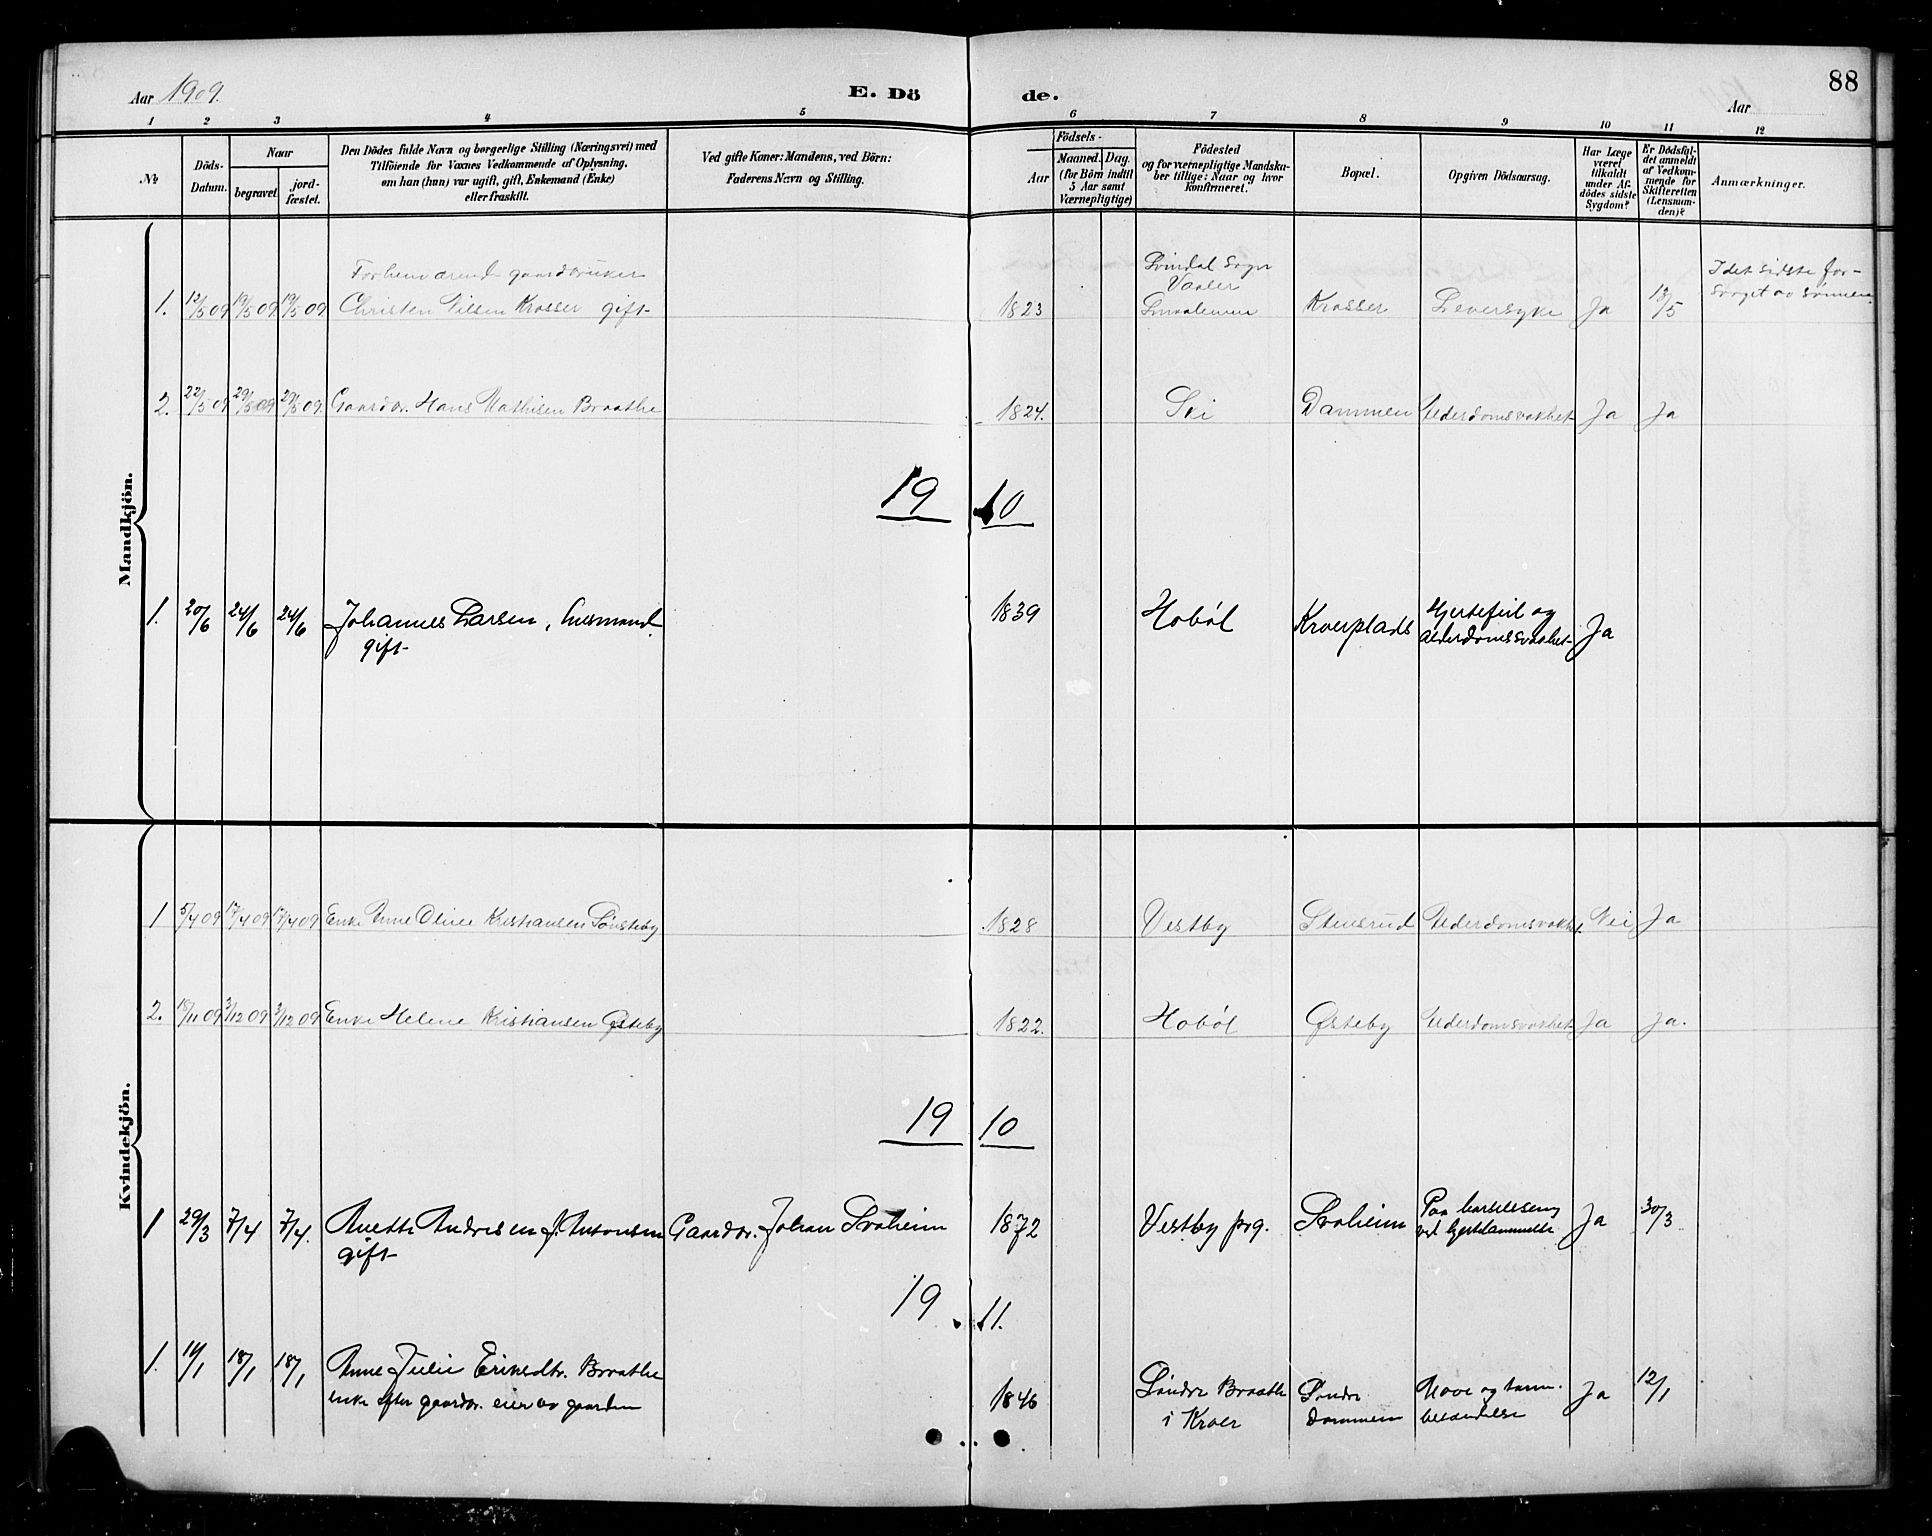 88
Aar 1909.
E. Dö
de.
Aar
1 2 3 4 5 6 7 8 9 10 11 12
№
Döds-Datum.
Naar
begravet
jord-fæstet.
Den Dödes fulde Navn og borgerlige Stilling (Næringsvei) med
Tilföiende for Voxnes Vedkommende af Oplysning.
om han (hun) var ugift, gift, Enkemand (Enke)
eller fraskilt.
Ved gifte Koner: Mandens, ved Börn:
Faderens Navn og Stilling.
Födsels-
Aar
Maaned. Dag.
(for Börn indtil
5 Aar samt
Værnepligtige)
Födested
og for værnepligtige Mandska-
ber tillige: Naar og hvor
Konfirmeret.
Bopæl.
Opgiven Dödsaarsag.
Har Læge
været
tilkaldt
under Af-
dödes sidste
Sygdom?
Er Dödsfal-
det anmeldt
af Vedkom-
mende for
Skifteretten
(Lensman-
den)?
Anmærkninger.
Mandkjön.
Forhenværende gaardbruker
1. 12/5 09 19/5 09 19/5 09 Christen Nilsen Krosser gift 1823 Svindal Sogn Vaaler Smaalenene Krosser Leversyke Ja 13/5 I det sidste for-
sørget av sønnen
2. 22/5 09 29/5 09 29/5 09. Gaardbr. Hans Mathisen Braathe 1824. Ski Dammen Alderdomsvakhet Ja Ja
19 10
1. 20/6 24/6 24/6 Johannes Larsen, husmand. 1839 Hobøl Kroerplads Hjertefeil og Ja
gift alderdomssvakhet
Kvindekjön.
1 5/4 09 17/4 09 17/4 09 Enke Anne Oline Kristiansen Sønsteby 1828 Vestby Stensrud Alderdomsvakhet. Nei Ja
2. 18/11 09 3/12 09 3/12 09 Enke Helene Kristiansen Østeby 1822. Hobøl Østeby Alderdomsvakhet Ja Ja.
19 10
1 29/3 7/4 7/4. Anette Andresen f. Antonsen Gaardbr. Johan Svaheim 1872 Vestby prg. Svaheim Paa barselseng Ja 30/3
gift ved
19 11.
1. 14/1 18/1 18/1 Anne Julie Eriksdtr. Braathe 1846 Søndre Braathe Søndre Mave og tarm- Ja 12/1
enke efter gaardbr. eier av gaarden i Kroer Dammen betændelse